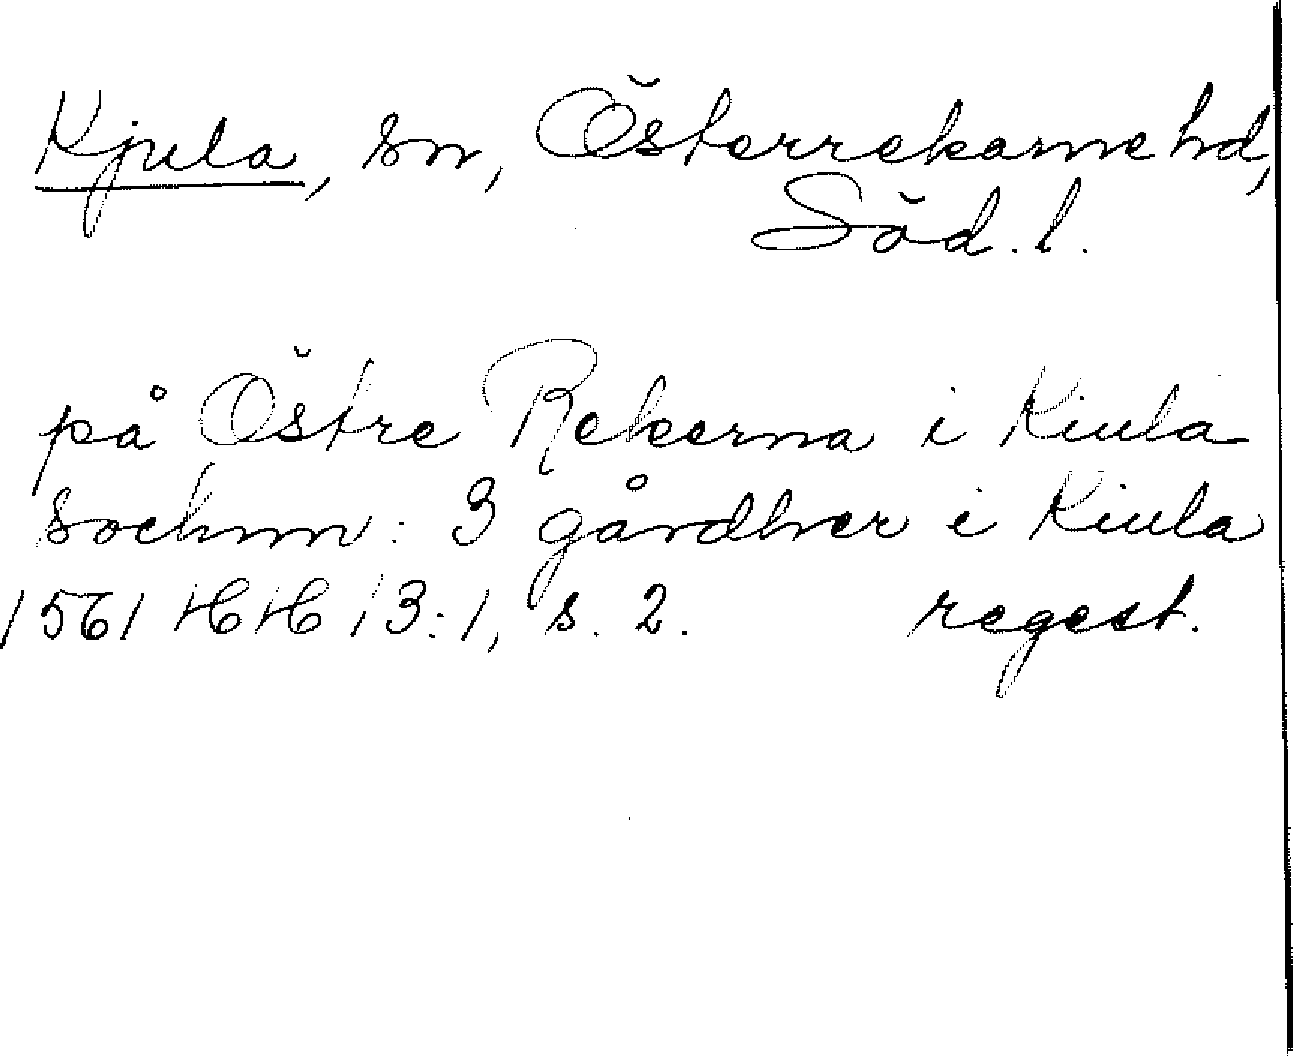 Kjula, sn, Österrekarne hd,
Söd. l.
på Östre Rekerna i Kiula
sochnn: 3 gårdher i Kiula
1561 HH 13:1, s. 2. regest.